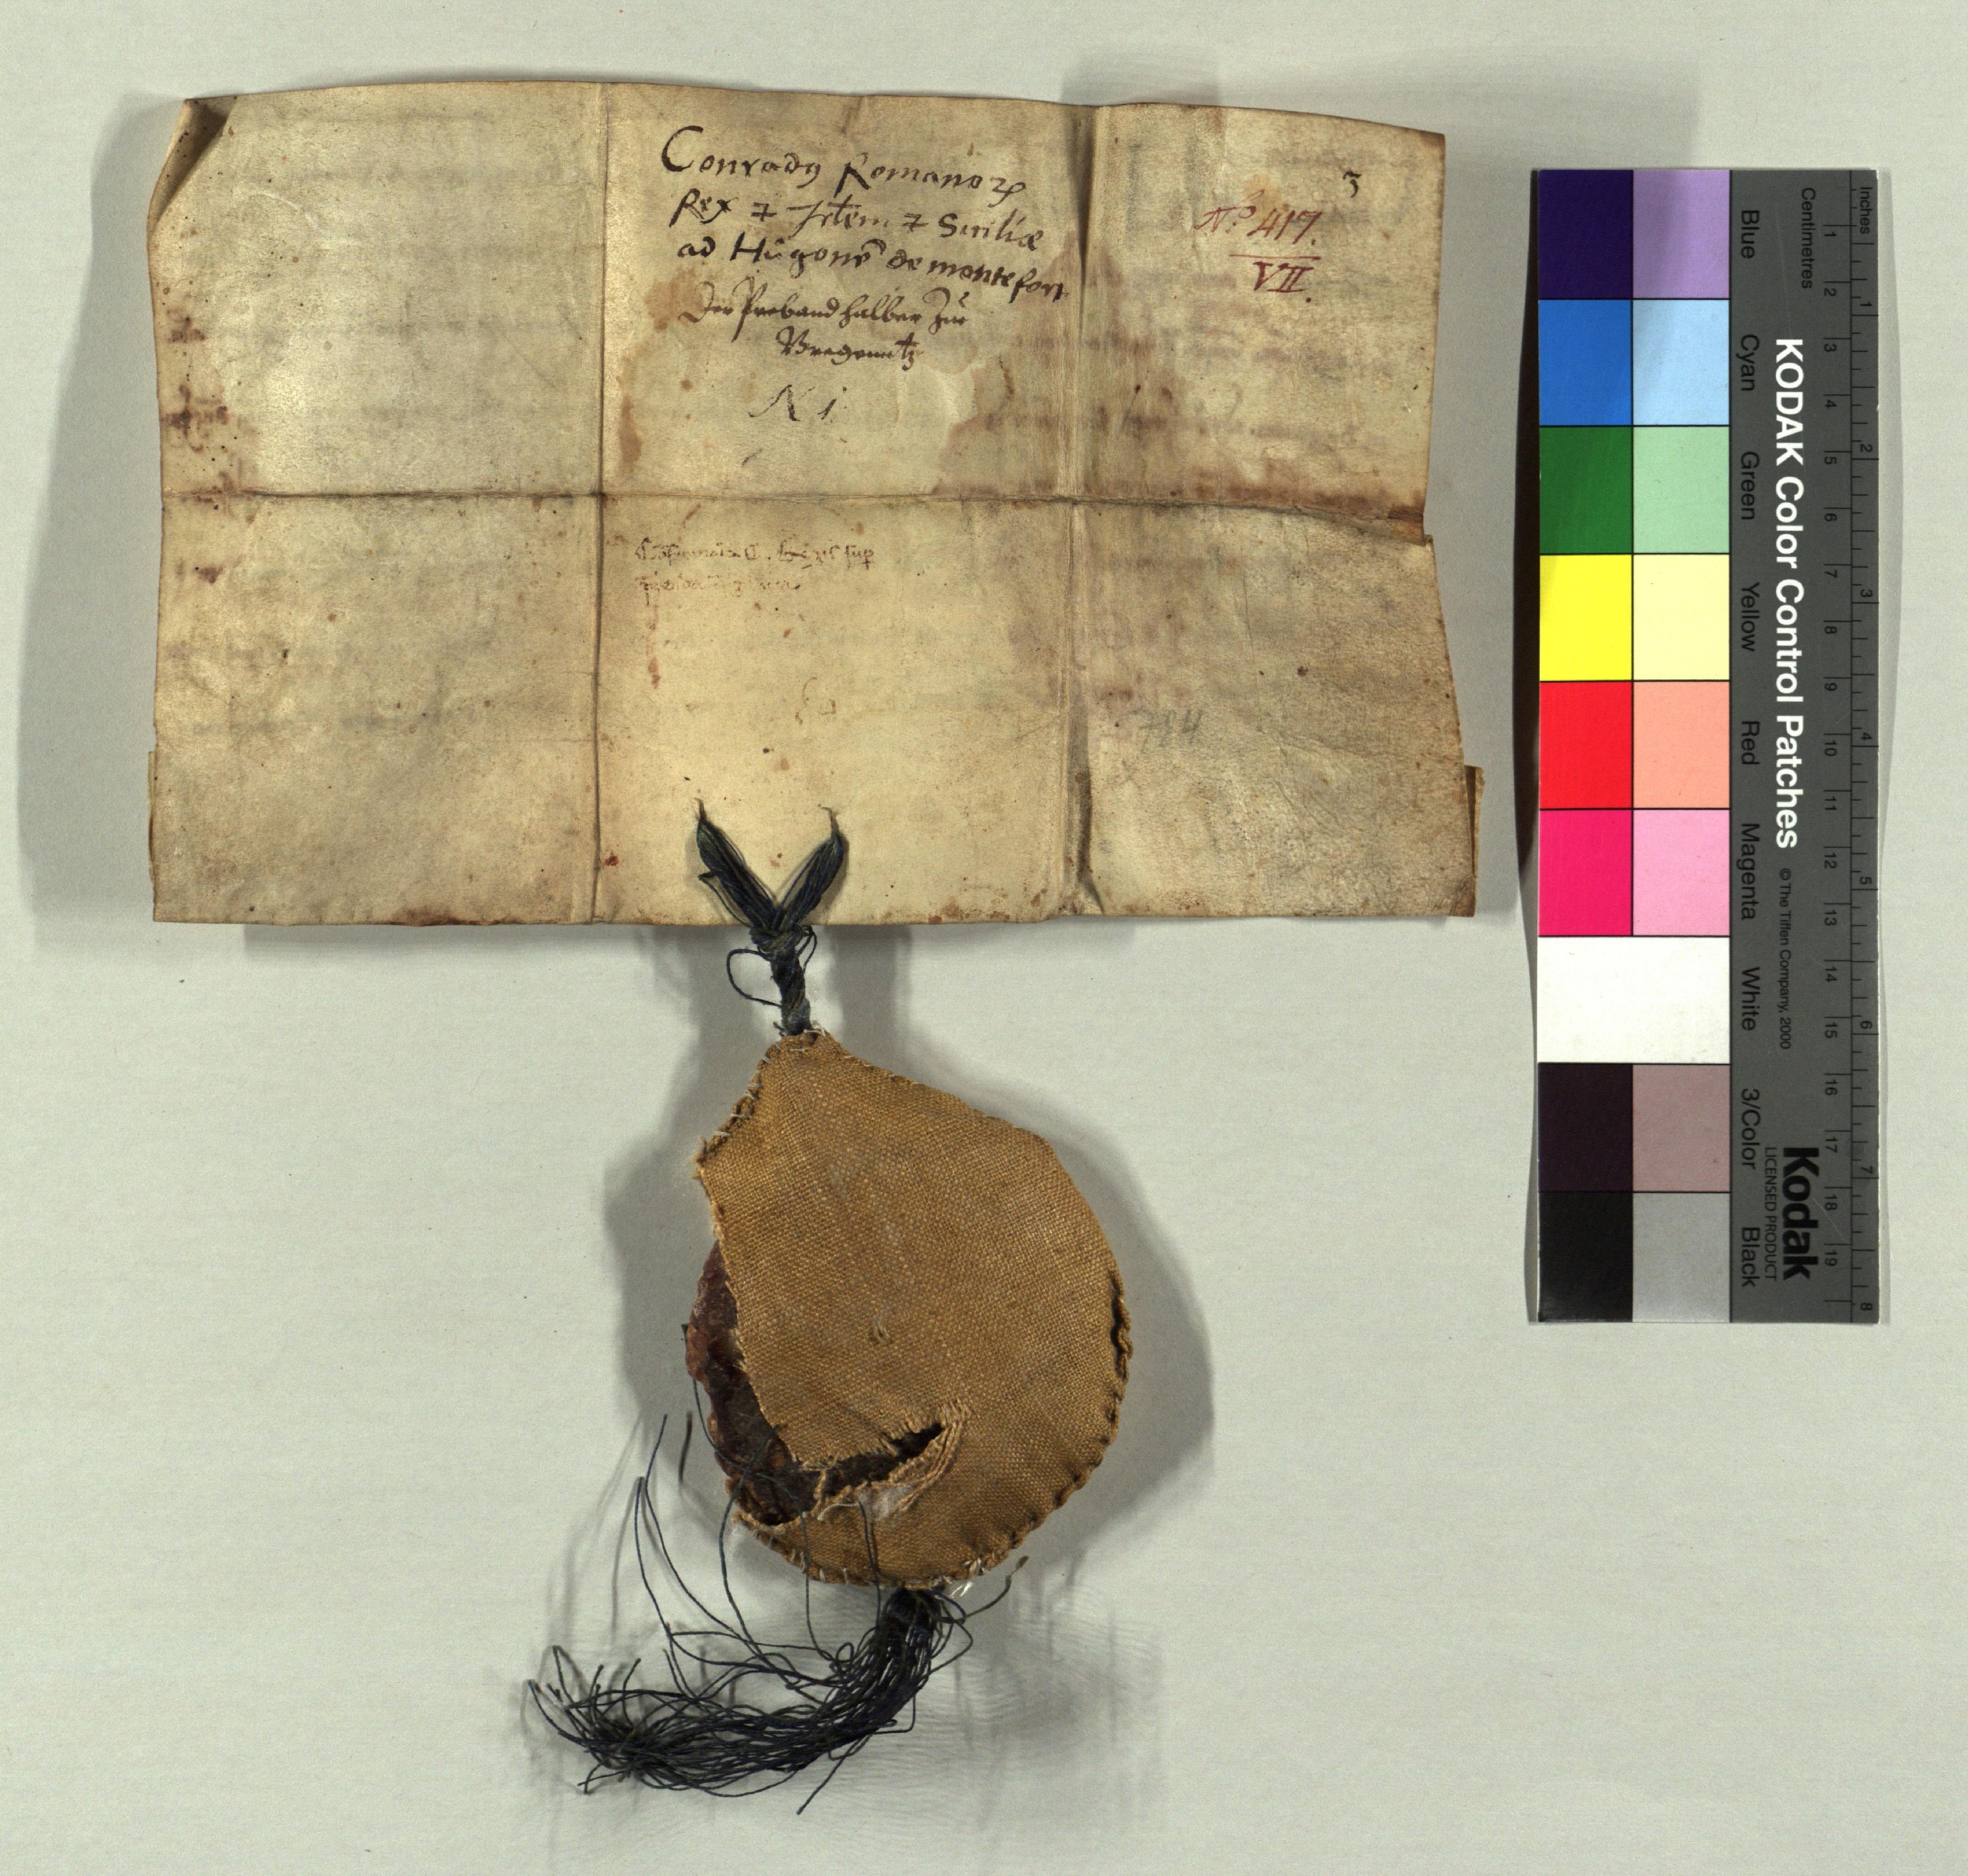 Conradꝯ Romanoꝝ
Rex ⁊ Jrłem ⁊ Siciliæ
ad Hůgonē de montefort
Der Preband halber zů
Bregenntz
N 1
3
N.º 417.
VII.
784
KODAK Color Control Patches
© The Tiffen Company, 2000
Kodak
LICENSED PRODUCT
Blue
Cyan
Green
Yellow
Red
Magenta
White
3/Color
Black
Centimetres
1 2 3 4 5 6 7 8 9 10 11 12 13 14 15 16 17 18 19
Inches
1 2 3 4 5 6 7 8